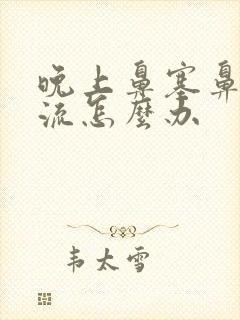 晚上鼻塞鼻
流怎麼办
韦太雪